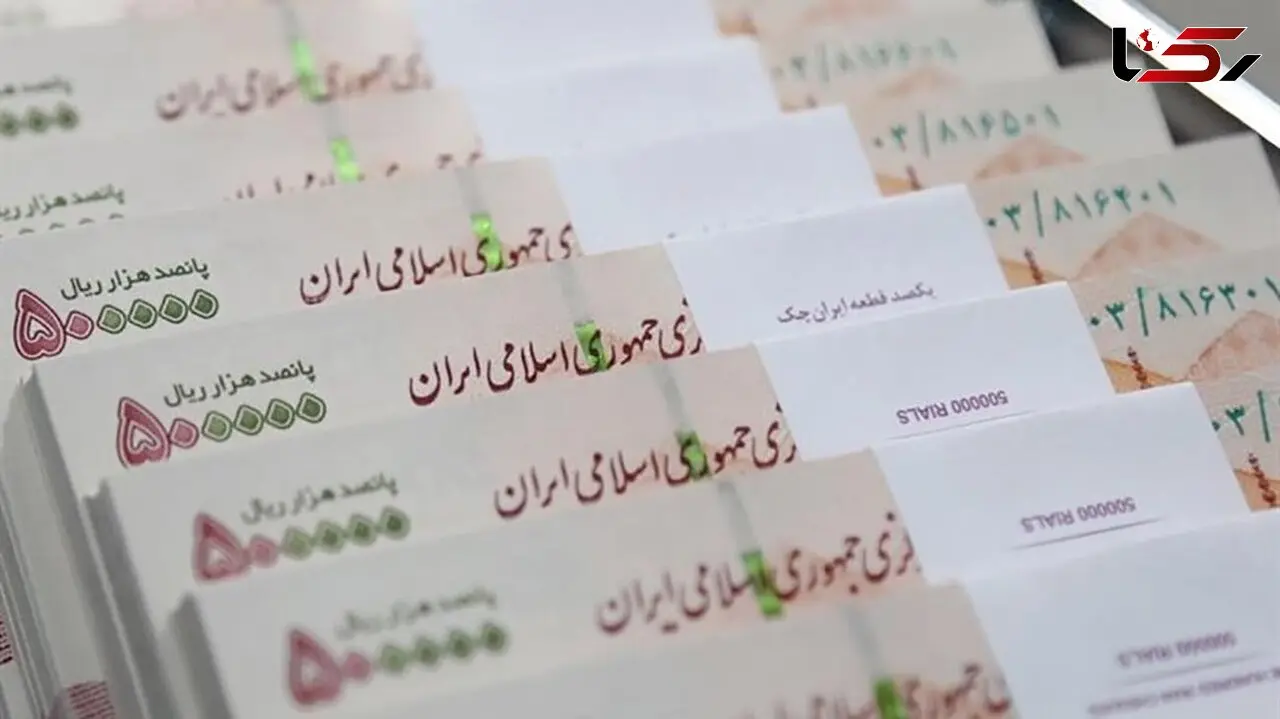 رکنا
۰۳/۸۱۶۶۰۱
ری جمهوری اسلامی ایران
۰۳/۸۱۶۵۰۱
پانصد هزار ریال
۰۳/۸۱۶۴۰۱
ی جمهوری اسلامی ایران
پانصد هزار ریال
۵۰۰۰۰۰
۰۳/۸۱۶۳۰۱
یکصد قطعه ایران چک
زی جمهوری اسلامی ایران
پانصد هزار ریال
۵۰۰۰۰۰
500000 RIALS
۰۳/
زی جمهوری اسلامی ایران
پانصد هزار ریال
۵۰۰۰۰۰
500000 RIALS
کزی جمهوری اسلامی ایران
پانصد هزار ریال
۵۰۰۰۰۰
500000 RIALS